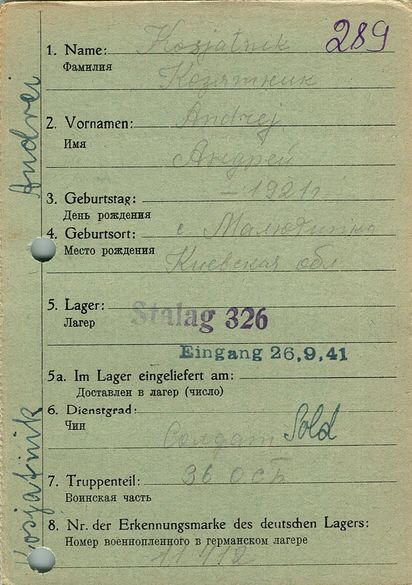 289
1. Name: Kosjatnik
Фамилия Козятник
2. Vornamen: Andrej
Имя Андрей
3. Geburtstag: – 1921 г
День рождения
4. Geburtsort: с
Место рождения Киевская обл
5. Lager: Stalag 326
Лагер
Eingang 26.9.41
5a. Im Lager eingeliefert am:
Доставлен в лагер (число)
6. Dienstgrad:
Чин Солдат Sold
7. Truppenteil: 36
Воинская часть
8. Nr. der Erkennungsmarke des deutschen Lagers:
Номер военнопленного в германском лагере
Andrei
Kosjatnik